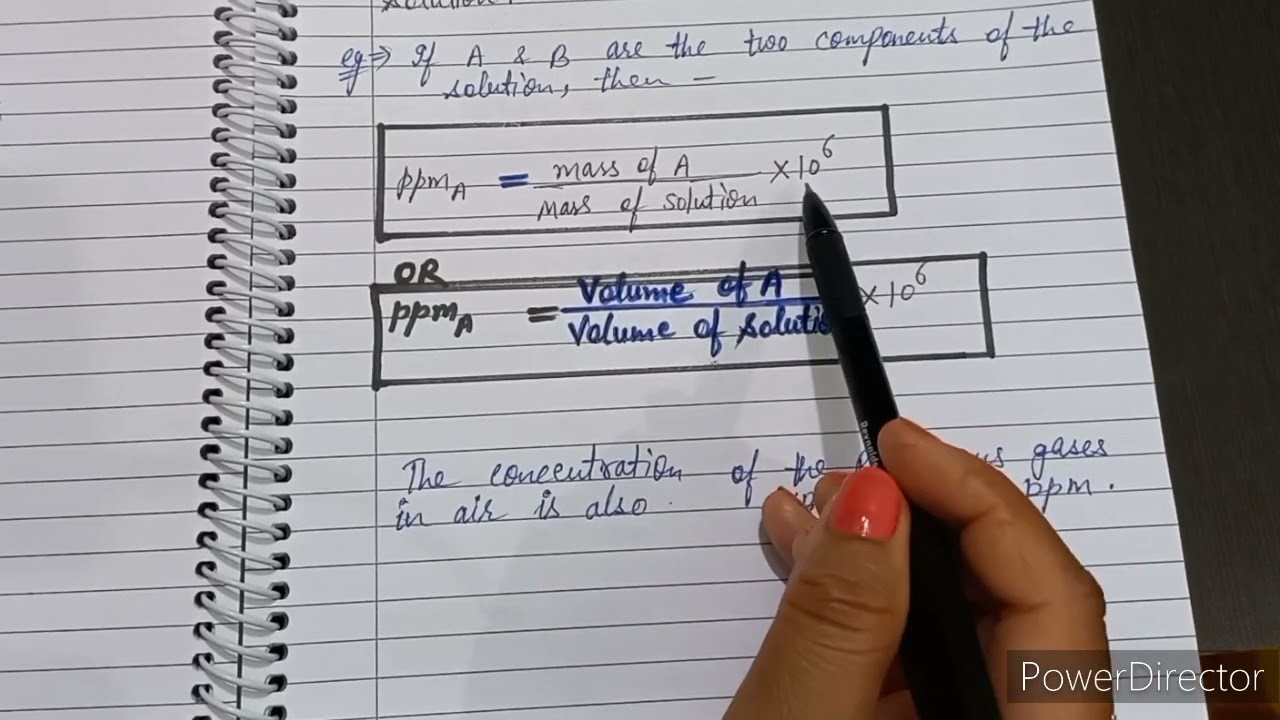 solution.
eg ⇒ If A & B are the two components of the
solution, then –
ppm_A = mass of A / Mass of solution × 10⁶
OR
ppm_A = Volume of A / Volume of solutio × 10⁶
The concentration of the gases
in air is also ppm.
Reynolds
PowerDirector